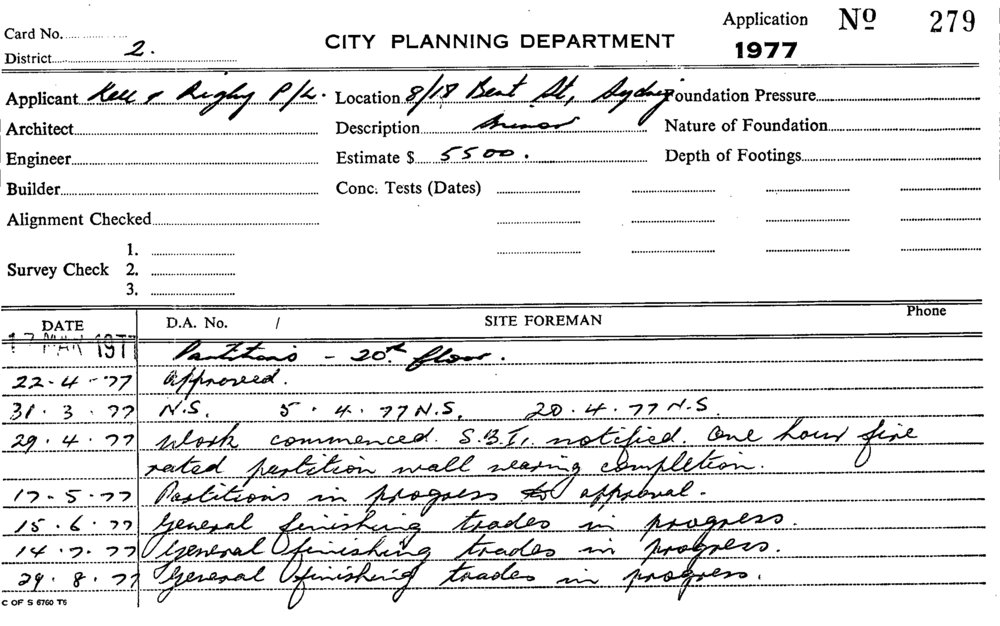 Card No.
District 2.
CITY PLANNING DEPARTMENT
Application No 279
1977
Applicant Kell & Rigby P/L. Location 8/18 Bent St, Sydney Foundation Pressure
Architect Description Minor Nature of Foundation
Engineer Estimate $ 5500. Depth of Footings
Builder Conc. Tests (Dates)
Alignment Checked
Survey Check 1.
2.
3.
DATE D.A. No. / SITE FOREMAN Phone
17 MAR 1977 Partitions - 20th floor.
22.4.77 Approved.
31.3.77 N.S. 5.4.77 N.S. 20.4.77 N.S.
29.4.77 Work commenced. S.B.I. notified. One hour fire
rated partition wall nearing completion.
17.5.77 Partitions in progress to approval.
15.6.77 General finishing trades in progress.
14.7.77 General finishing trades in progress.
29.8.77 General finishing trades in progress.
C OF S 6760 T5